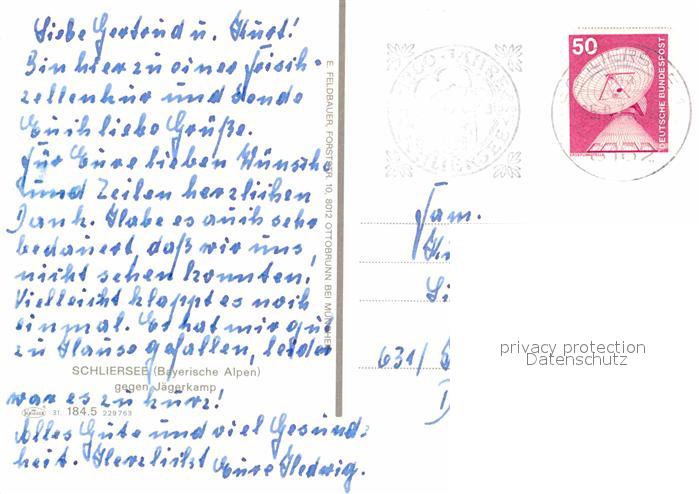 Liebe Gertrud u. Kurt!
Bin hier zu einer Frisch-
zellenkur und sende
Euch liebe Grüße.
Für Eure lieben Wünsche
und Zeilen herzlichen
Dank. Habe es auch sehr
bedauert, daß wir uns
nicht sehen konnten,
Vielleicht klappt es noch
einmal. Es hat mir gut
zu Hause gefallen, leider
SCHLIERSEE (Bayerische Alpen)
gegen Jägerkamp
war es zu kurz!
31. 184.5 229763
Alles Gute und viel Gesund-
heit. Herzlichst Eure Hedwig.
E. FELDBAUER, FORSTSTR. 10, 8012 OTTOBRUNN BEI MÜNCHEN
JAHRE
SCHLIERSEE
50
DEUTSCHE BUNDESPOST
Fam.
631/
privacy protection
Datenschutz